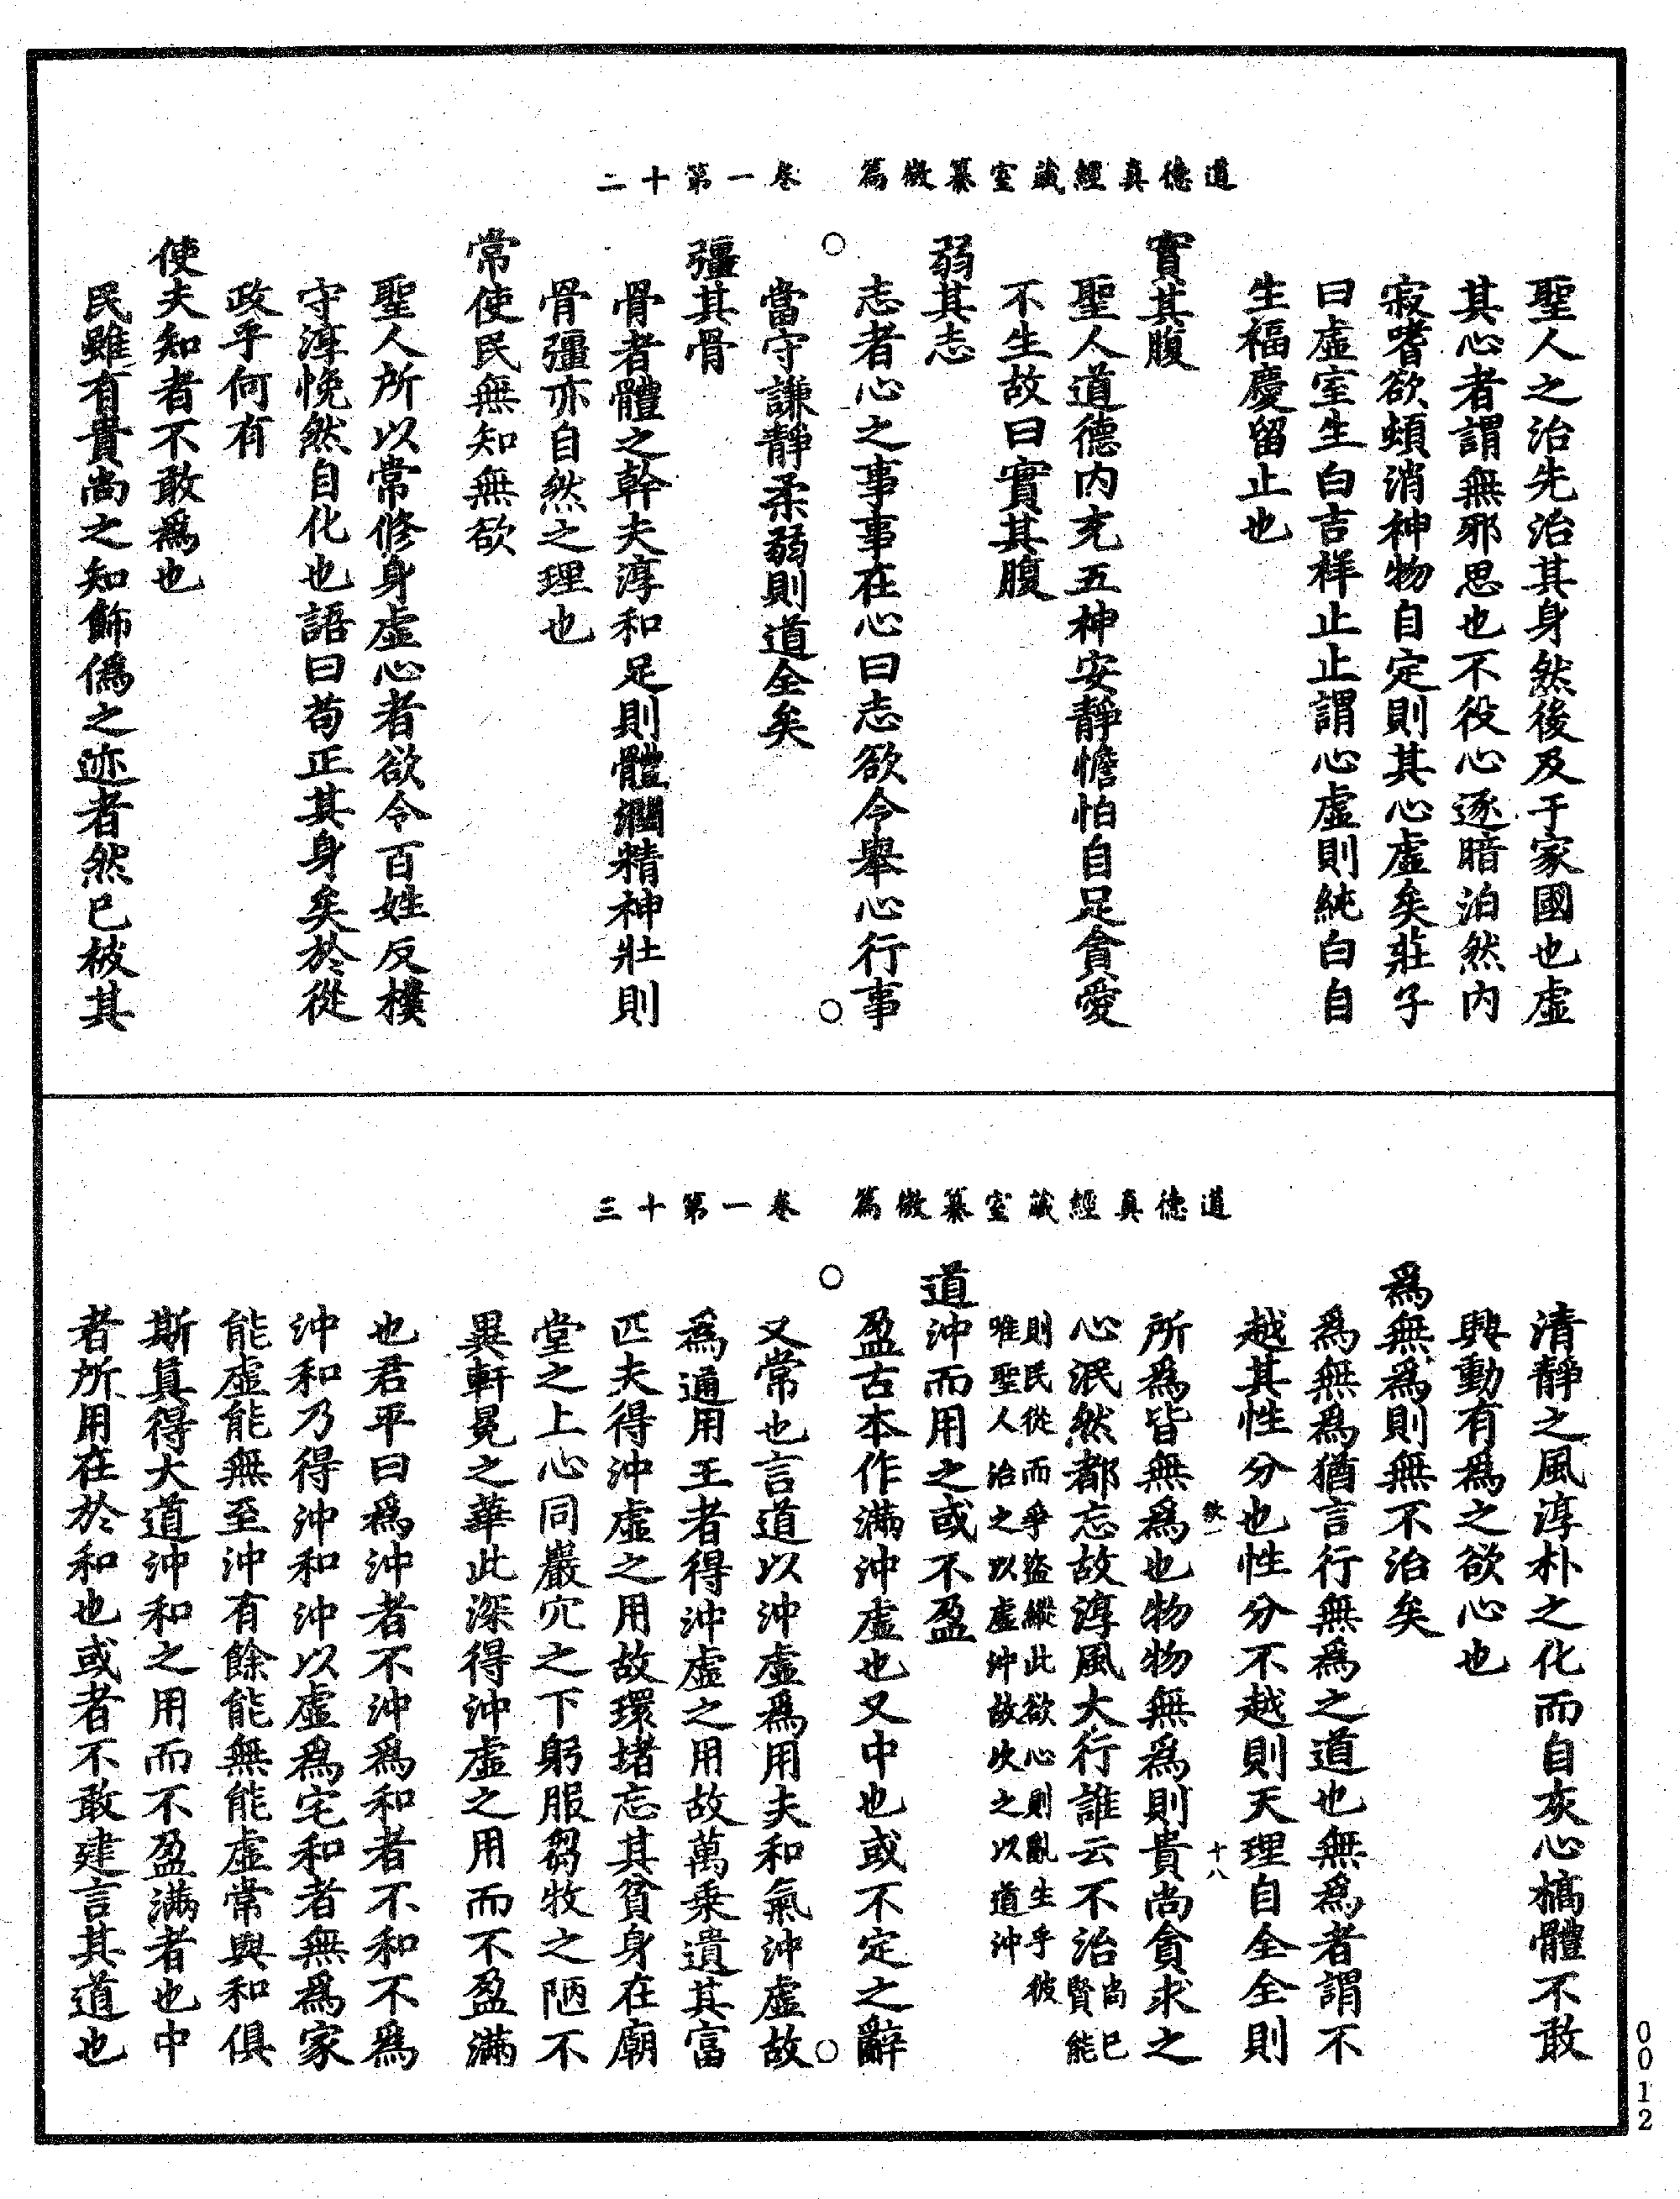 道德真經藏室纂微篇　卷一第十二
聖人之治先治其身然後及于家國也虛
其心者謂無邪思也不役心逐暗泊然內
寂嗜欲頓消神物自定則其心虛矣莊子
曰虛室生白吉祥止止謂心虛則純白自
生福慶留止也
實其腹
聖人道德內充五神安靜憺怕自足貪愛
不生故曰實其腹
弱其志
志者心之事事在心曰志欲令舉心行事
當守謙靜柔弱則道全矣
彊其骨
骨者體之幹夫淳和足則體潤精神壯則
骨彊亦自然之理也
常使民無知無欲
聖人所以常修身虛心者欲令百姓反樸
守淳悗然自化也語曰苟正其身矣於從
政乎何有
使夫知者不敢爲也
民雖有貴尚之知飾僞之迹者然已被其
道德真經藏室纂微篇　卷一第十三
清靜之風淳朴之化而自灰心槁體不敢
興動有爲之欲心也
爲無爲則無不治矣
爲無爲猶言行無爲之道也無爲者謂不
越其性分也性分不越則天理自全全則
欽一　十八
所爲皆無爲也物物無爲則貴尚貪求之
心泯然都忘故淳風大行誰云不治尚賢已能
則民從而爭盜縱此欲心則亂生乎彼
唯聖人治之以虛沖故次之以道沖
道沖而用之或不盈
盈古本作滿沖虛也又中也或不定之辭
又常也言道以沖虛爲用夫和氣沖虛故
爲通用王者得沖虛之用故萬乘遺其富
匹夫得沖虛之用故環堵忘其貧身在廟
堂之上心同巖穴之下躬服芻牧之陋不
異軒冕之華此深得沖虛之用而不盈滿
也君平曰爲沖者不沖爲和者不和不爲
沖和乃得沖和沖以虛爲宅和者無爲家
能虛能無至沖有餘能無能虛常與和俱
斯真得大道沖和之用而不盈滿者也中
者所用在於和也或者不敢建言其道也
0012